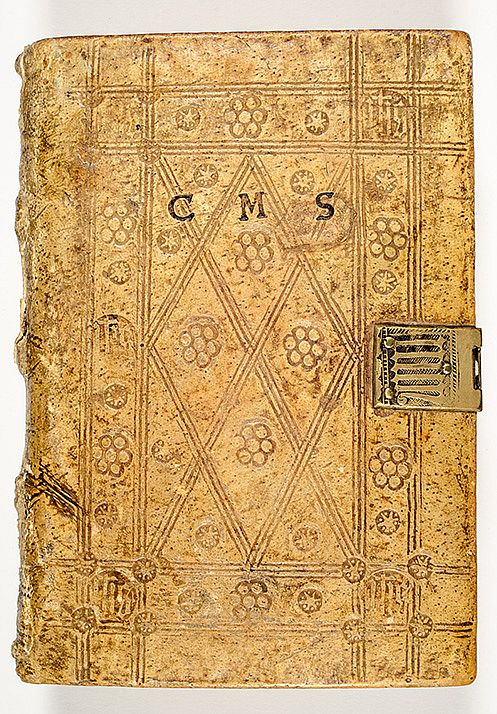 C M S